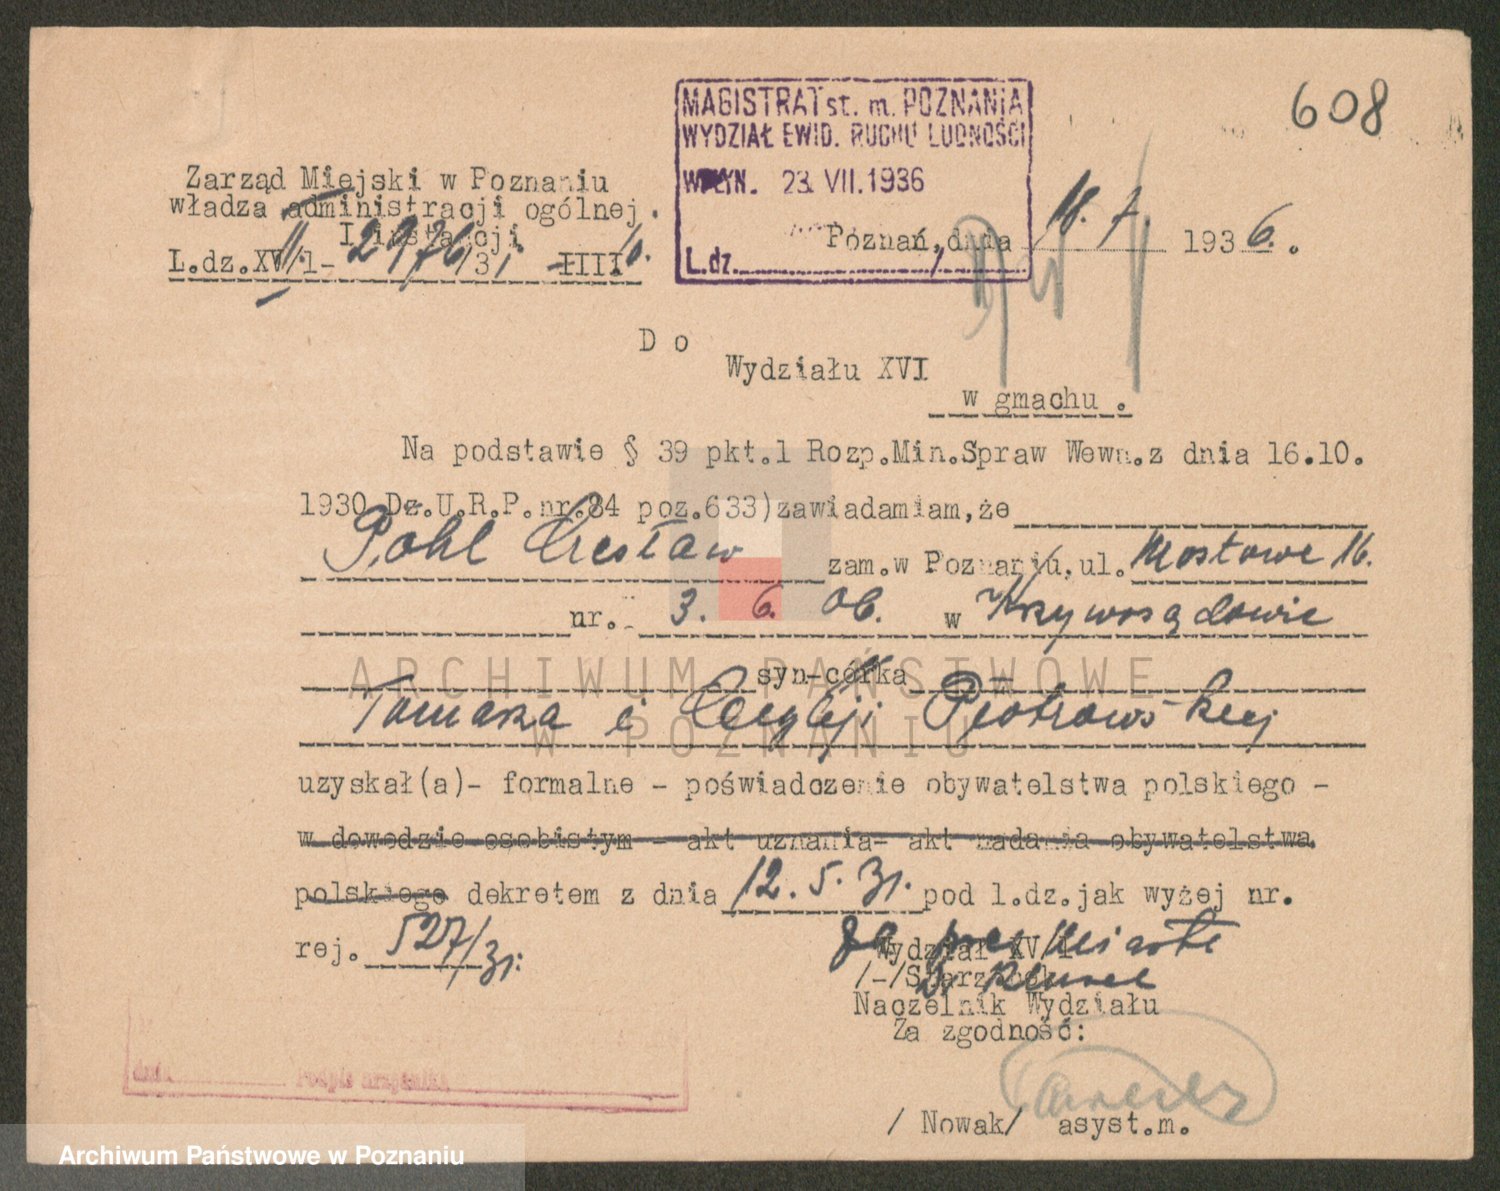 608
MAGISTRAT st. m. POZNANIA
WYDZIAŁ EWID. RUCHU LUDNOŚCI
WPŁYN. 23. VII. 1936
L.dz.
Zarząd Miejski w Poznaniu
władza administracji ogólnej.
I instancji
L.dz.XV/1- 2976/3
Poznań, dnia 18. 7. 1936.
Do
Wydziału XVI
w gmachu.
Na podstawie § 39 pkt.1 Rozp.Min.Spraw Wewn.z dnia 16.10.
1930 Dz.U.R.P.nr.84 poz.633)zawiadamiam,że
Pohl Czesław zam.w Poznaniu,ul. Mostowe 16.
nr. 3. 6. 06. w Krzywosądowie
syn-córka
Tomasza i Cecylji Piotrowskiej
uzyskał(a)- formalne - poświadczenie obywatelstwa polskiego -
w dowodzie osobistym - akt uznania- akt nadania obywatelstwa
polskiego dekretem z dnia 12. 5. 31. pod l.dz.jak wyżej nr.
rej. 527/31.
Wydział XV/1
Naczelnik Wydziału
Za zgodność:
/ Nowak/ asyst.m.
dnia Podpis urzędnika
ARCHIWUM PAŃSTWOWE
W POZNANIU
Archiwum Państwowe w Poznaniu